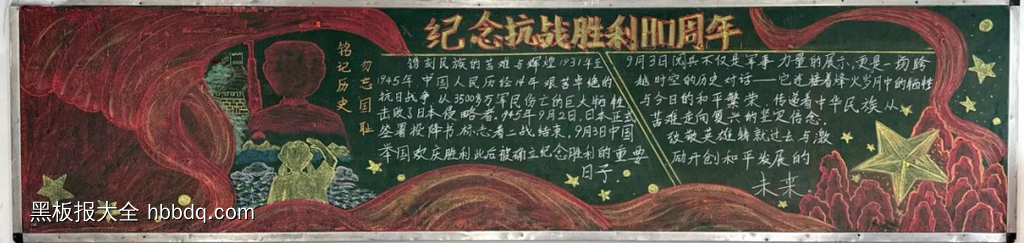 纪念抗战胜利80周年
铭记历史
勿忘国耻
镌刻民族的苦难与辉煌1931年至
1945年中国人民历经14年艰苦卓绝的
抗日战争,从3500多万军民伤亡的巨大牺牲
击败了日本侵略者。1945年9月2日,日本正式
签署投降书,标志着二战结束,9月3日中国
举国欢庆胜利此后被确立纪念胜利的重要
日子.
9月3日阅兵不仅是军事力量的展示,更是一场跨
越时空的历史对话——它连接着烽火岁月中的牺牲
与今日的和平繁荣,传递着中华民族从
苦难走向复兴的坚定信念,
致敬英雄铸就过去与激
励开创和平发展的
未来.
黑板报大全 hbbdq.com